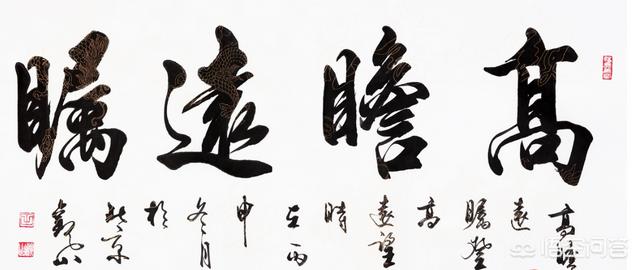 高瞻遠矚
高瞻
遠
矚登
高
遠望
時
在丙
申
冬月
於
北京
悟空问答